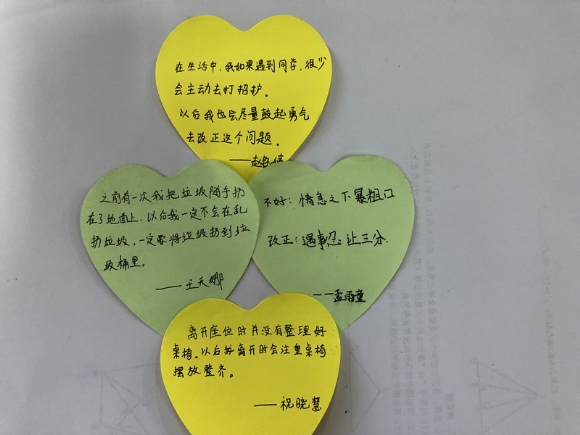 在生活中,我如果遇到同学,很少
会主动去打招护。
以后我也会尽量鼓起勇气
去改正这个问题。
——赵
之前有一次我把垃圾随手扔
在了地面上,以后我一定不会在乱
扔垃圾,一定要将垃圾扔到垃
圾桶里。
——王天娜
不好:情急之下暴粗口
改正:遇事忍让三分
——孟雨童
离开座位时没有整理好
桌椅。以后我离开时会注重桌椅
摆放整齐。
——祝晓慧